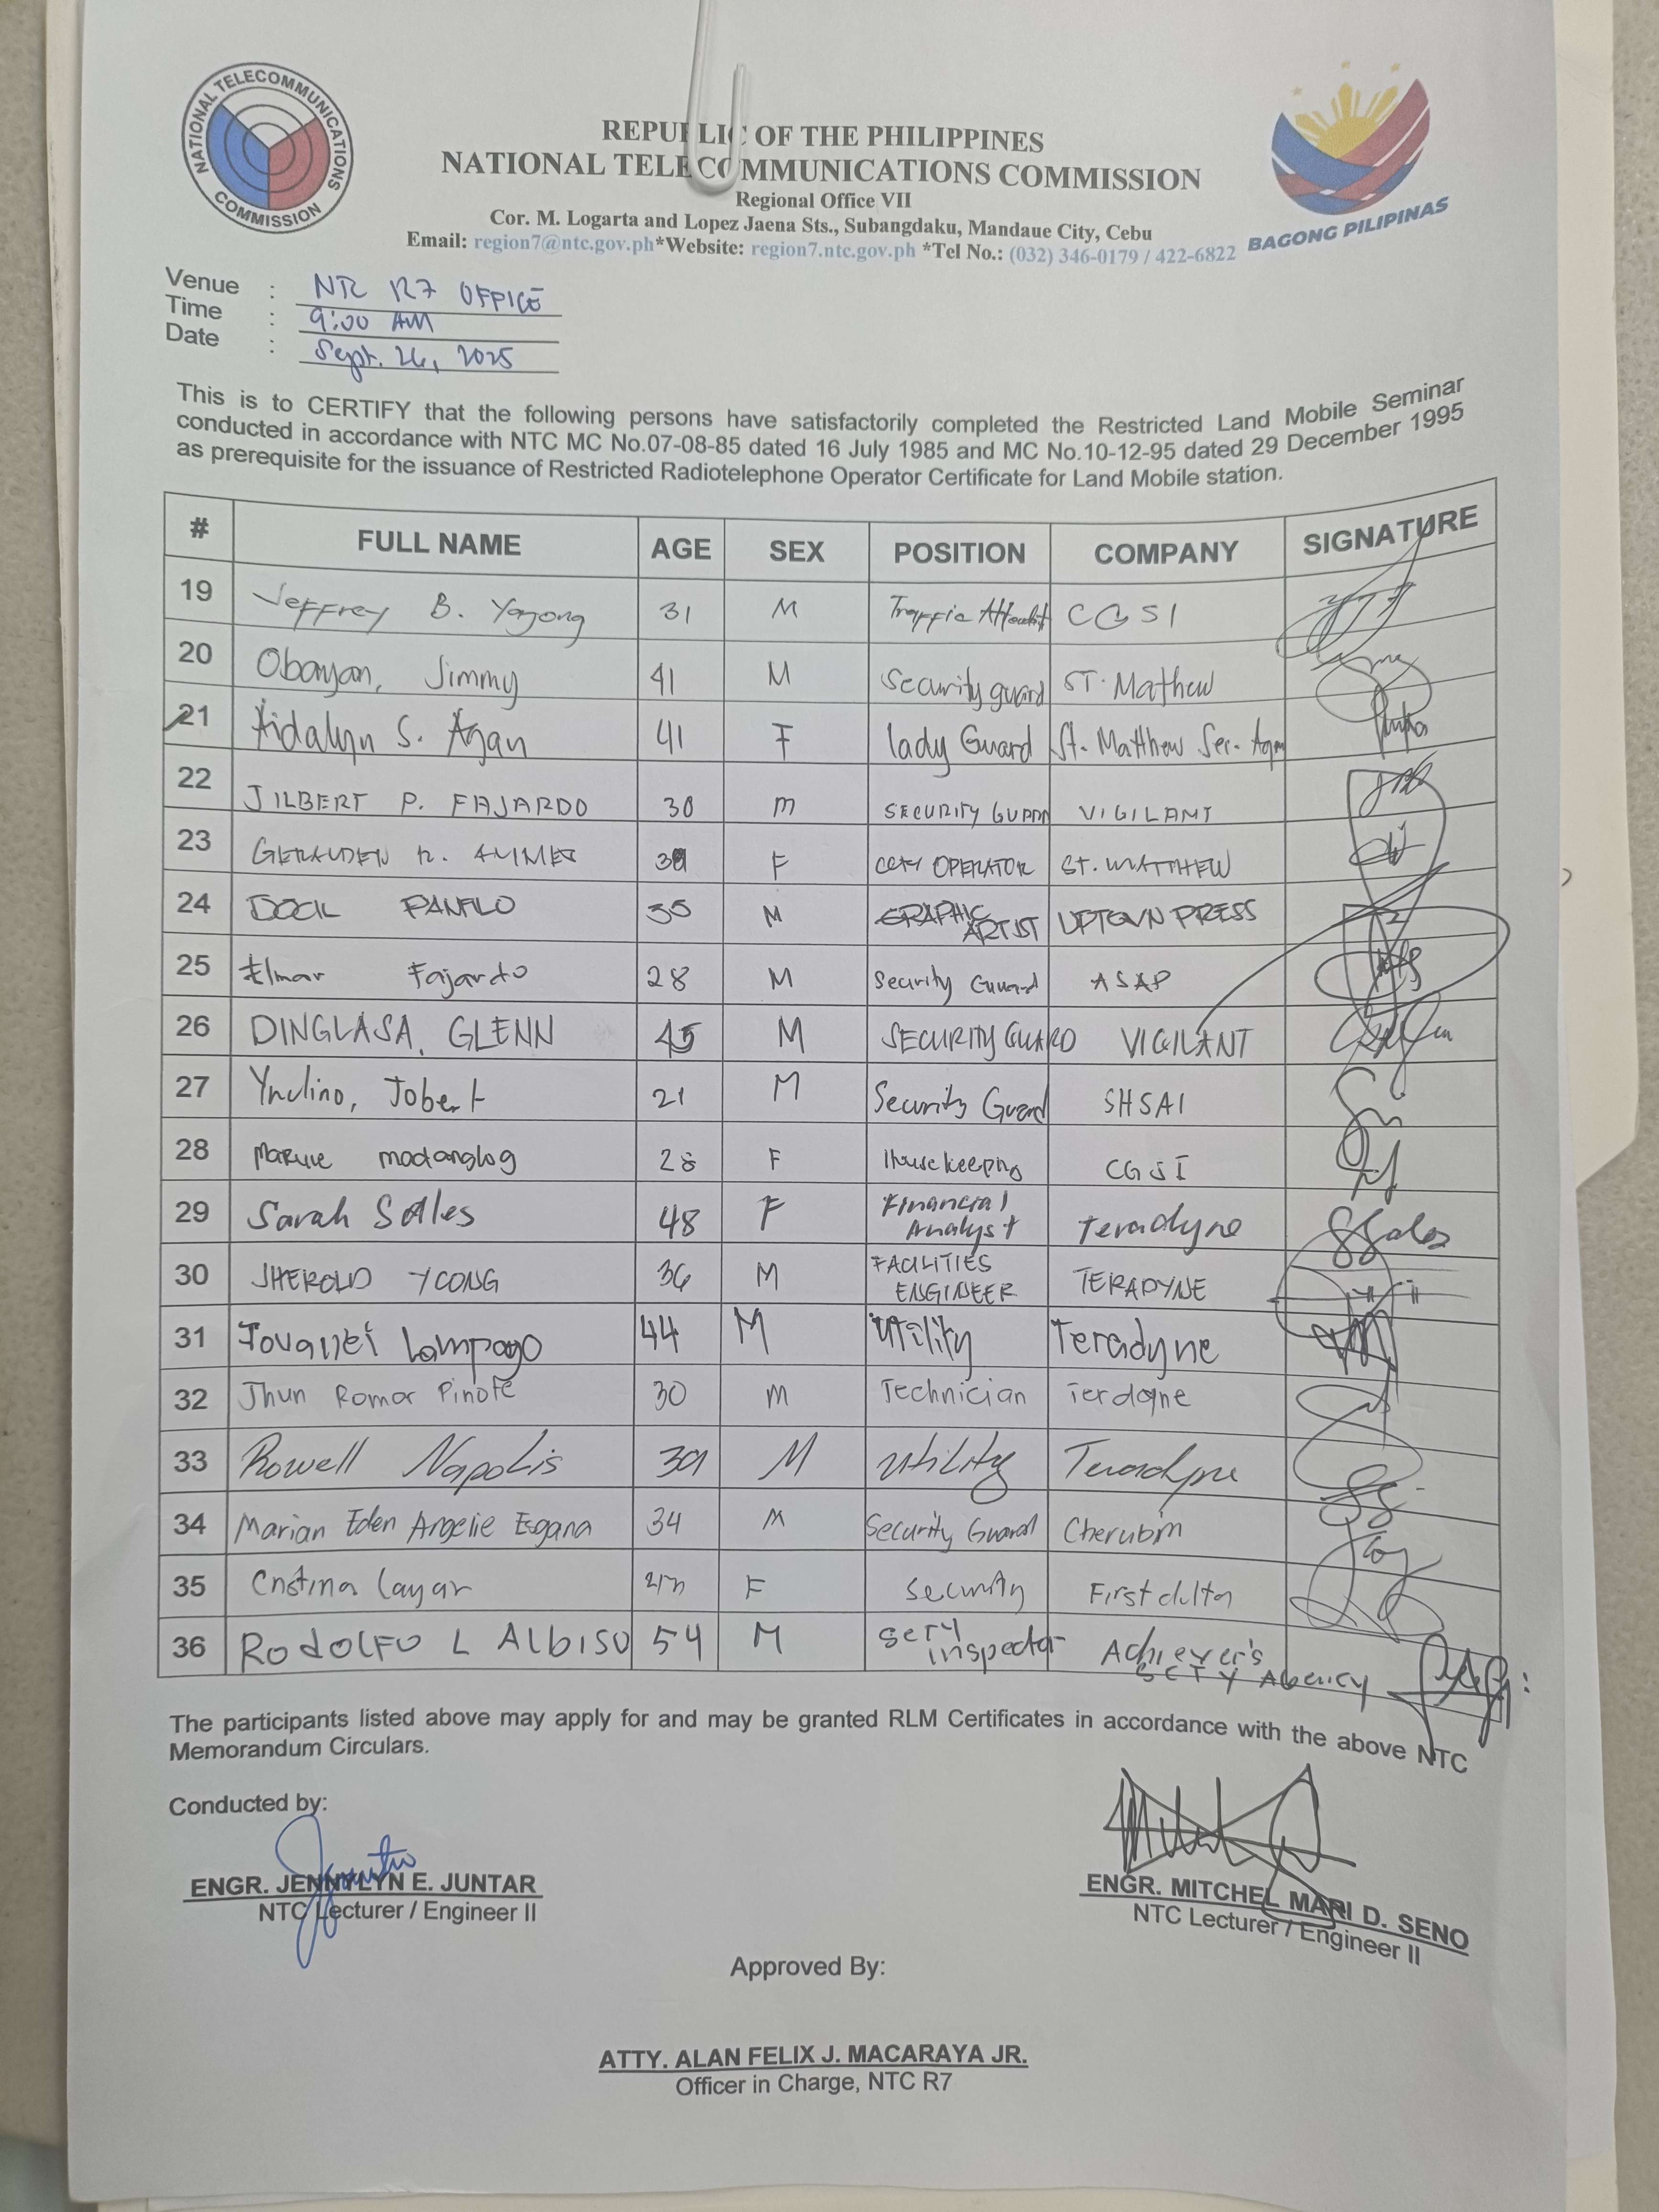 NATIONAL TELECOMMUNICATIONS COMMISSION
BAGONG PILIPINAS
REPUBLIC OF THE PHILIPPINES
NATIONAL TELECOMMUNICATIONS COMMISSION
Regional Office VII
Cor. M. Logarta and Lopez Jaena Sts., Subangdaku, Mandaue City, Cebu
Email: region7@ntc.gov.ph*Website: region7.ntc.gov.ph *Tel No.: (032) 346-0179 / 422-6822
Venue : NTC R7 OFFICE
Time : 9:00 AM
Date : Sept. 26, 2025
This is to CERTIFY that the following persons have satisfactorily completed the Restricted Land Mobile Seminar
conducted in accordance with NTC MC No.07-08-85 dated 16 July 1985 and MC No.10-12-95 dated 29 December 1995
as prerequisite for the issuance of Restricted Radiotelephone Operator Certificate for Land Mobile station.
# FULL NAME AGE SEX POSITION COMPANY SIGNATURE
19 Jeffrey B. Yagong 31 M Traffic CGSI
20 Obanyan, Jimmy 41 M Security guard ST. Mathew
21 Aidalyn S. Agan 41 F lady Guard St. Matthew Ser.
22 JILBERT P. FAJARDO 30 M SECURITY GUARD VIGILANT
23 R. F OPERATOR ST. MATTHEW
24 DOCIL PANFILO 35 M GRAPHIC ARTIST UPTOWN PRESS
25 Elmar Fajardo 28 M Security Guard ASAP
26 DINGLASA, GLENN 45 M SECURITY GUARD VIGILANT
27 Jobert 21 M Security Guard SHSAI
28 28 F Housekeeping CGSI
29 Sarah Salles 48 F Financial Analyst Teradyne
30 JHEROLD YCONG 36 M FACILITIES ENGINEER TERADYNE
31 Lampago 44 M Utility Teradyne
32 Jhun Romar Pinote 30 M Technician Terdayne
33 Rowell Napolis 39 M Utility Teradyne
34 Marian Eden Angelie Esgana 34 M Security Guard Cherubim
35 Cristina Layar F Security First delta
36 RodolFo L Albiso 54 M inspector Achiever's SCTY Agency
The participants listed above may apply for and may be granted RLM Certificates in accordance with the above NTC
Memorandum Circulars.
Conducted by:
ENGR. JENNYLYN E. JUNTAR
NTC Lecturer / Engineer II
ENGR. MITCHEL MARI D. SENO
NTC Lecturer / Engineer II
Approved By:
ATTY. ALAN FELIX J. MACARAYA JR.
Officer in Charge, NTC R7